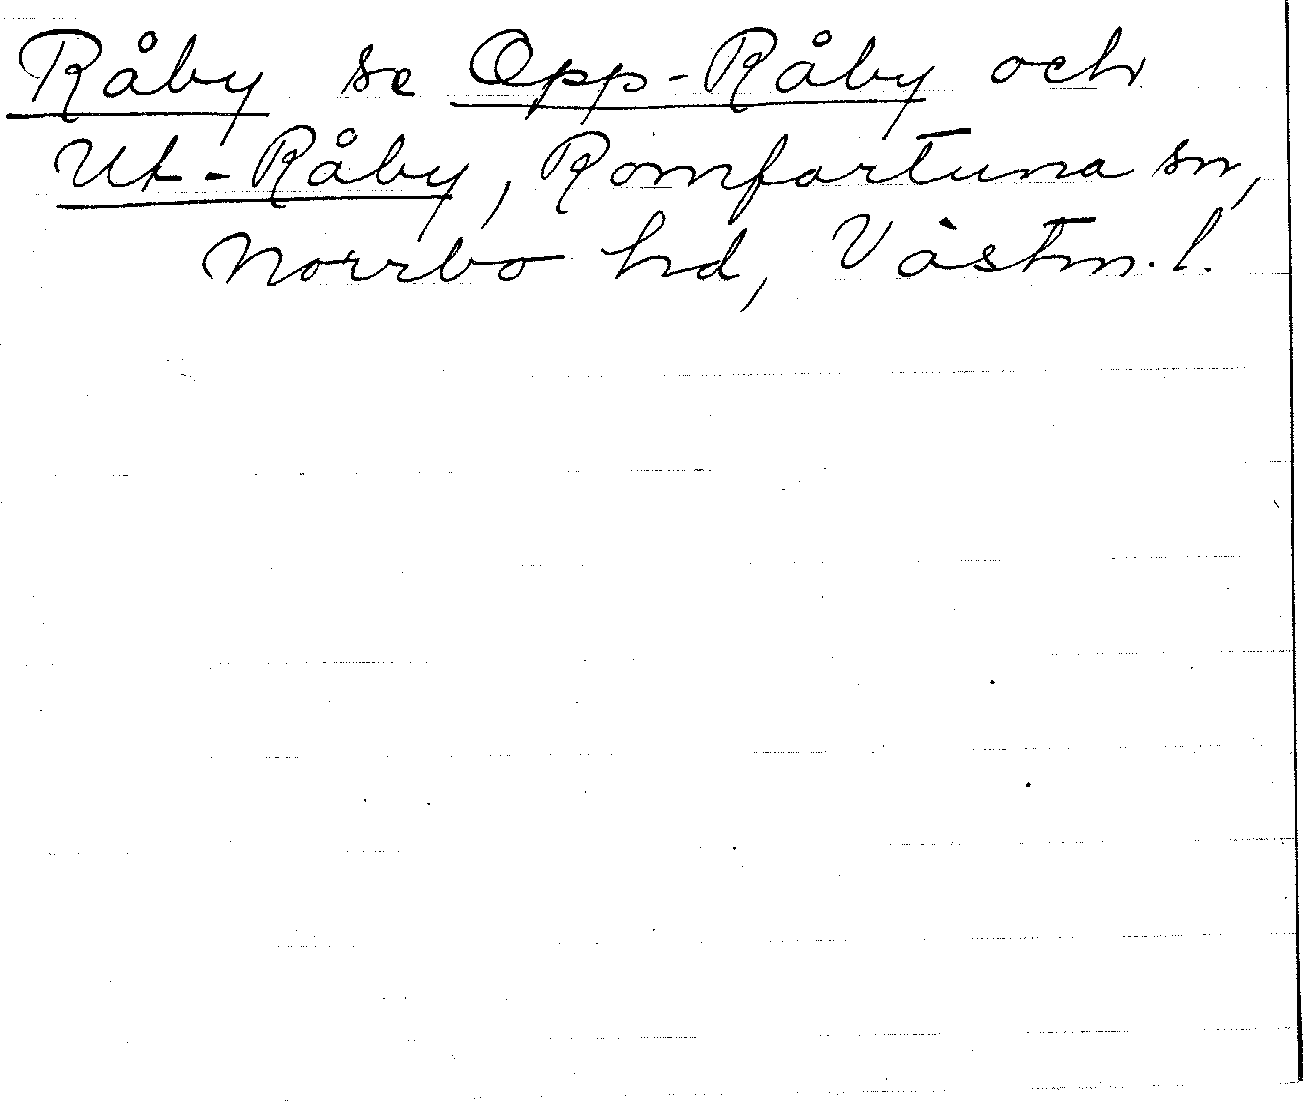 Råby se Opp-Råby och
Ut-Råby, Romfartuna sn,
Norrbo hd, Västm.l.